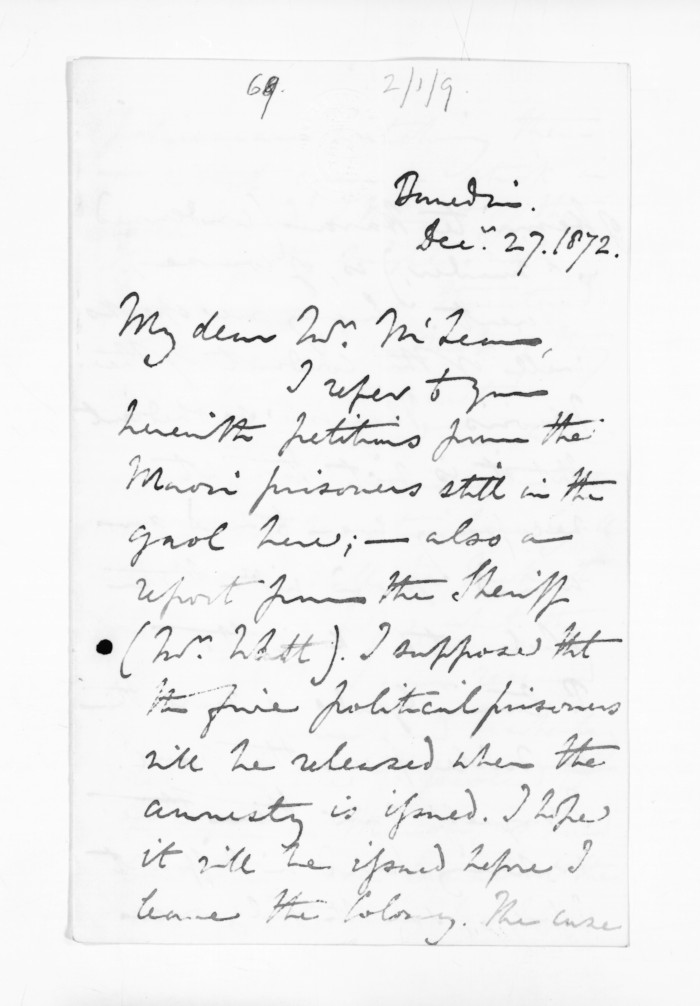 69. 2/1/9.
Dunedin.
Decr. 27. 1872.
My dear Mr. McLean,
I refer to you
herewith petitions from the
Maori prisoners still in the
gaol here; — also a
report from the Sheriff
(Mr. Watt). I suppose that
the five political prisoners
will be released when the
amnesty is issued. I hope
it will be issued before I
leave the Colony. The case